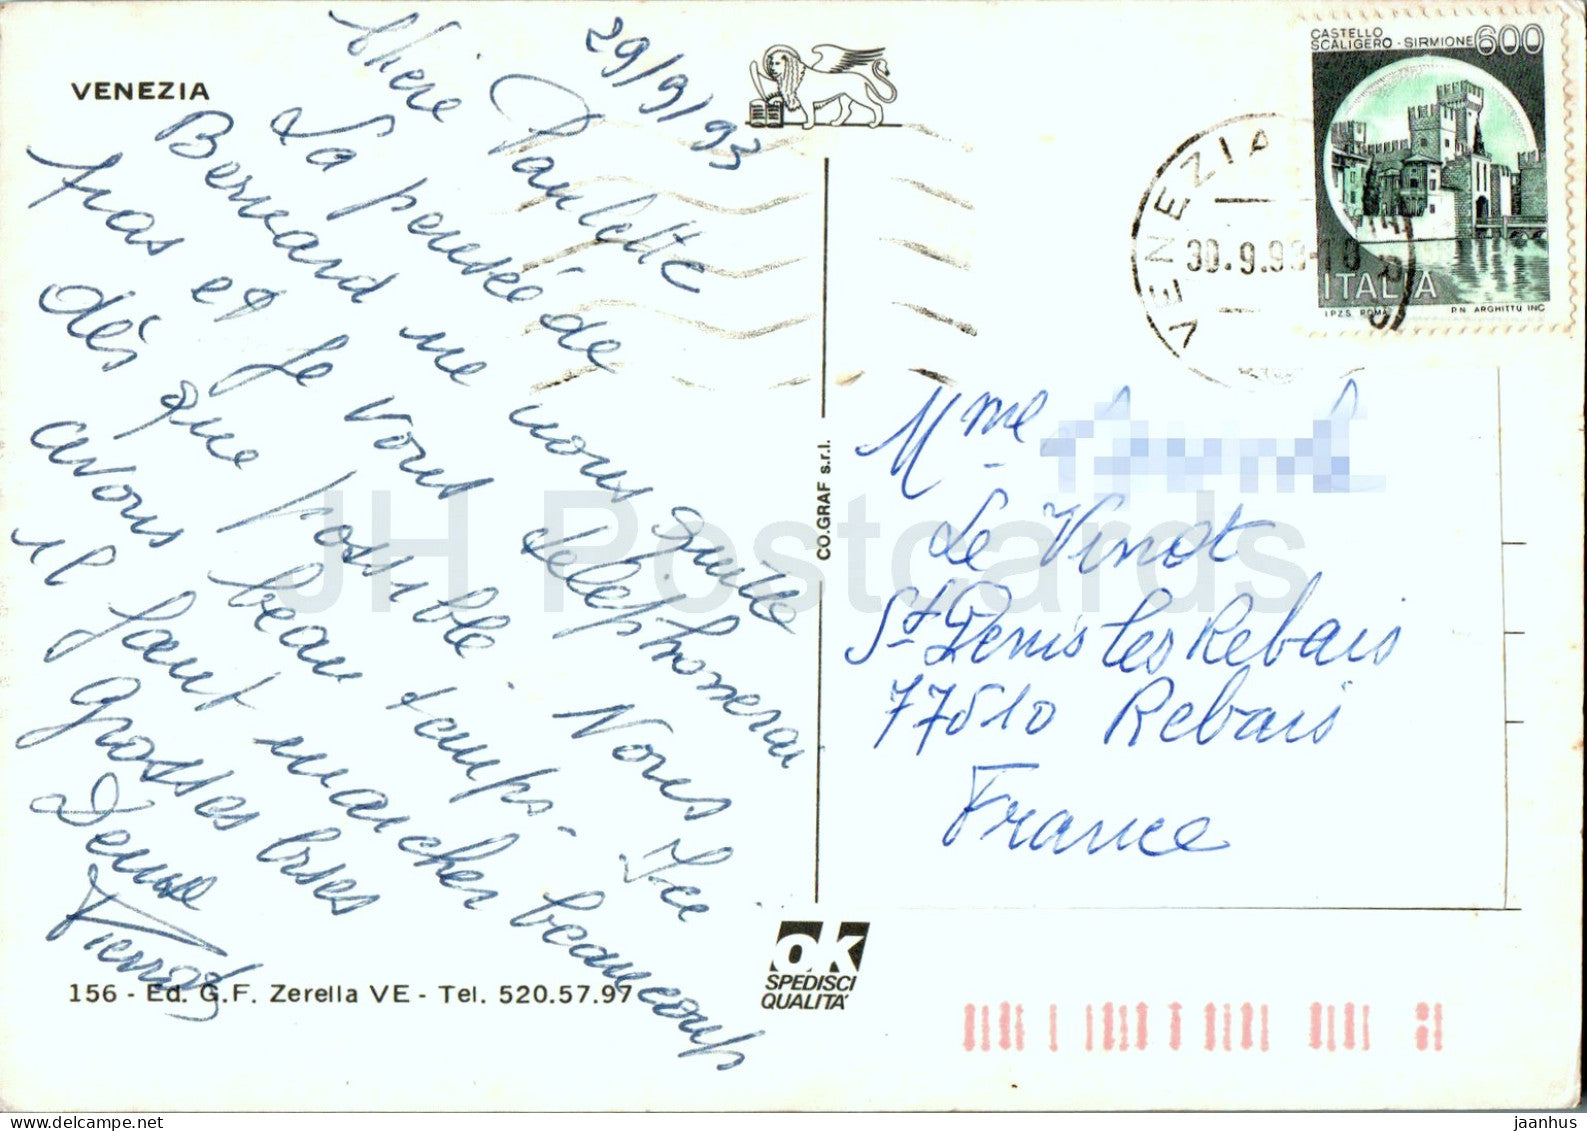 VENEZIA
29/9/93
Chère Paulette
La pensée de
Bernard ne nous quitte
pas et je vous telephonerai
dès que possible Nous
avons beau temps - Ici
il faut marcher beaucoup
Grosses bises
Denise
156 - Ed. G.F. Zerella VE - Tel. 520.57.97
CO.GRAF s.r.l.
OK
SPEDISCI
QUALITA'
CASTELLO
SCALIGERO - SIRMIONE 600
ITALIA
I.P.Z.S. ROMA
P.N. ARGHITTU INC.
VENEZIA
30.9.93-18
Mme
Le Vinot
St Denis les Rebais
77510 Rebais
France
JH Postcards
jaanhus © delcampe.net